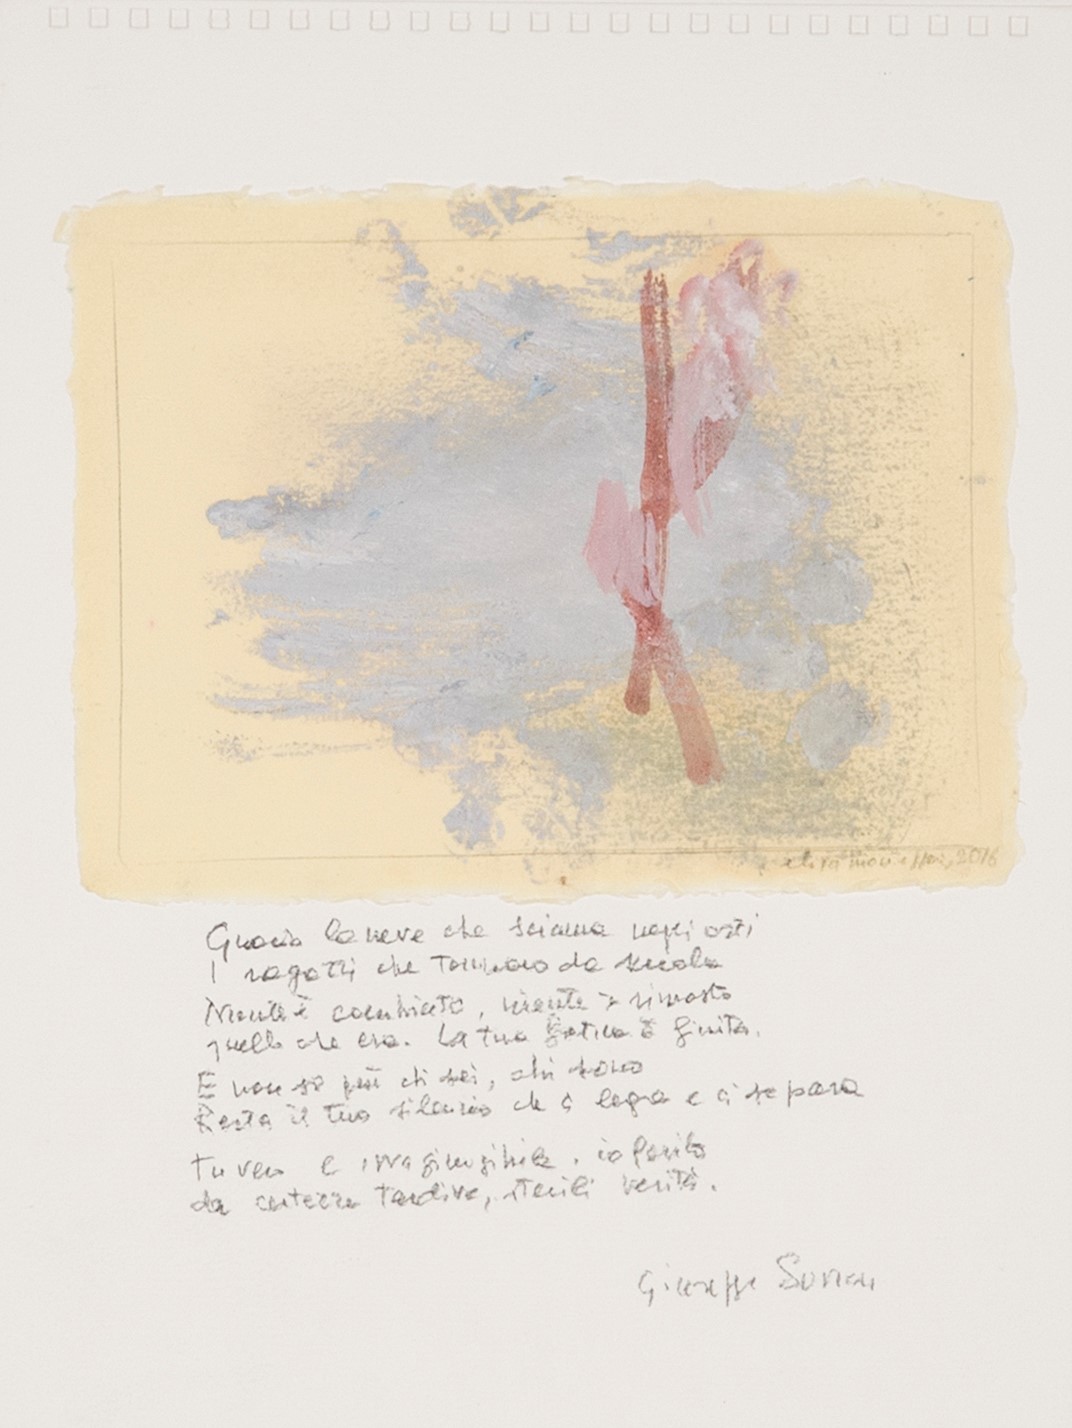 2016
Guardo la neve che sciama negli orti
I ragazzi che tornano da scuola
Niente è cambiato, niente è rimasto
quello che era. La tua fatica è finita.
E non so più chi sei, chi sono
Resta il tuo silenzio che ci lega e ci separa
Tu vera e irraggiungibile, io ferito
da certezze tardive, sterili verità.
Giuseppe